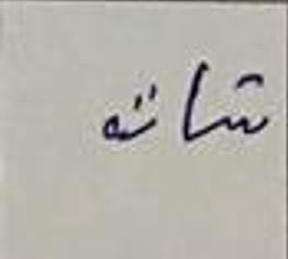 شانه